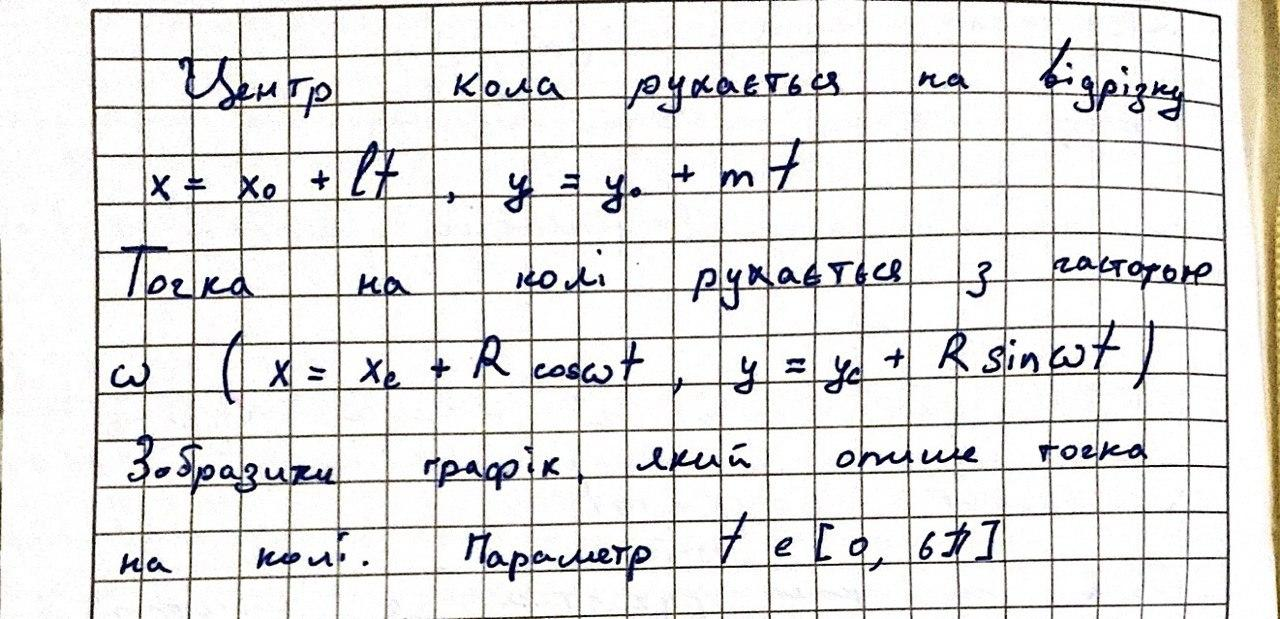 Центр кола рухається на відрізку
x = x₀ + lt, y = y₀ + mt
Точка на колі рухається з частотою
ω (x = xc + R cosωt, y = yc + R sinωt)
Зобразити графік, який опише точка
на колі. Параметр t ∈ [0, 6π]